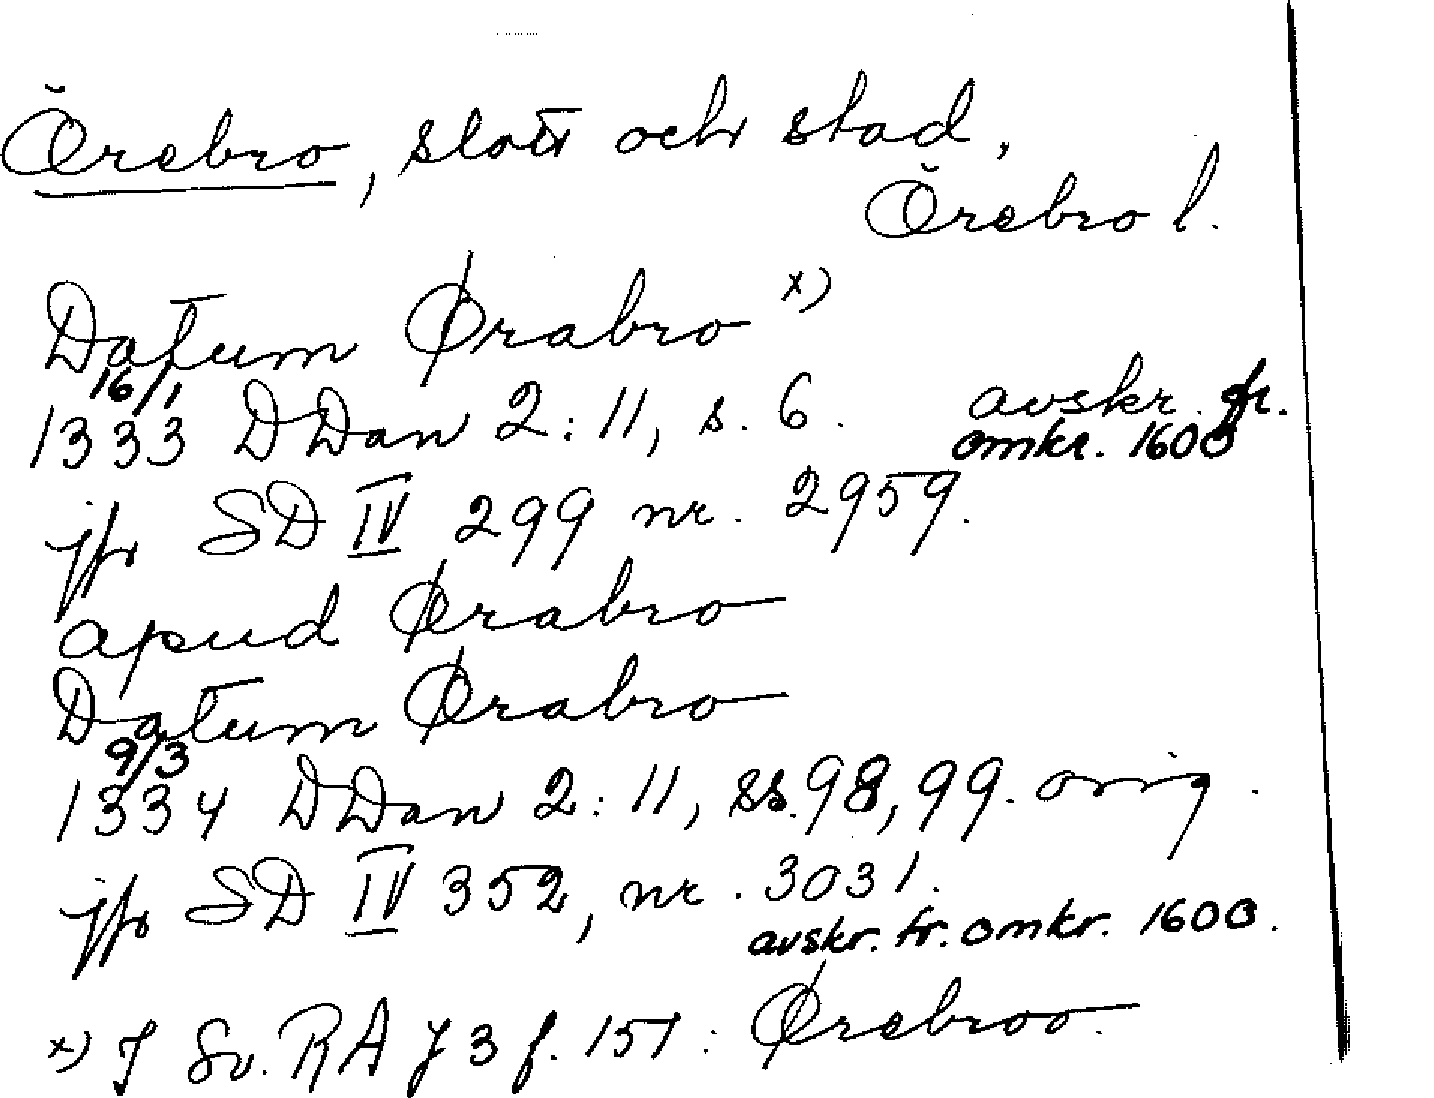 Örebro, slott och stad,
Örebro l.
Datum Ørabro x)
16/1
1333 DDan 2:11, s. 6. avskr. fr.
omkr. 1600
jfr SD IV 299 nr. 2959.
apud Ørabro
Datum Ørabro
9/3
1334 DDan 2:11, ss. 98, 99. orig.
jfr SD IV 352, nr. 3031.
avskr. fr. omkr. 1600.
x) I Sv. RA J 3 f. 151: Ørebroo.